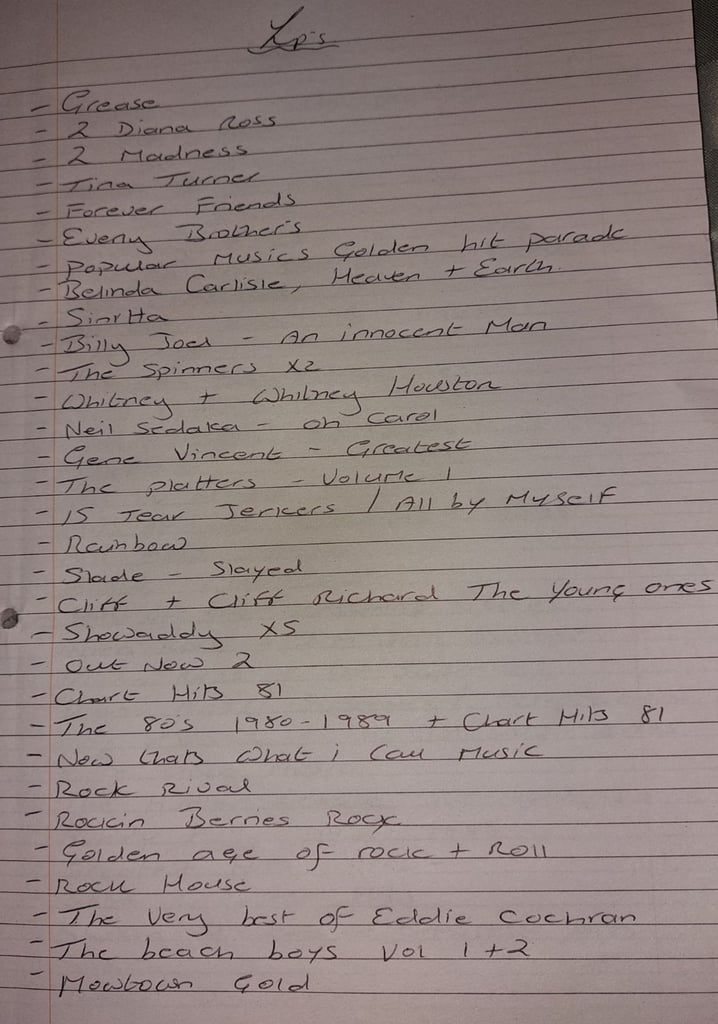 Lp's
- Grease
- 2 Diana Ross
- 2 Madness
- Tina Turner
- Forever Friends
- Everly Brother's
- Popular Musics Golden hit parade
- Belinda Carlisle, Heaven + Earth.
- Sinitta
- Billy Joel - An innocent Man
- The Spinners x2
- Whitney + Whitney Houston
- Neil Sedaka - oh Carol
- Gene Vincent - Greatest
- The platters - Volume 1
- 15 Tear Jerkers / All by Myself
- Rainbow
- Slade - Slayed
- Cliff + Cliff Richard The Young ones
- Showaddy x5
- Out Now 2
- Chart Hits 81
- The 80's 1980-1989 + Chart Hits 81
- Now thats what i call Music
- Rock Rival
- Rockin Berries Rock
- Golden age of rock + Roll
- Rock House
- The Very best of Eddie Cochran
- The beach boys Vol 1 + 2
- Mowtown Gold